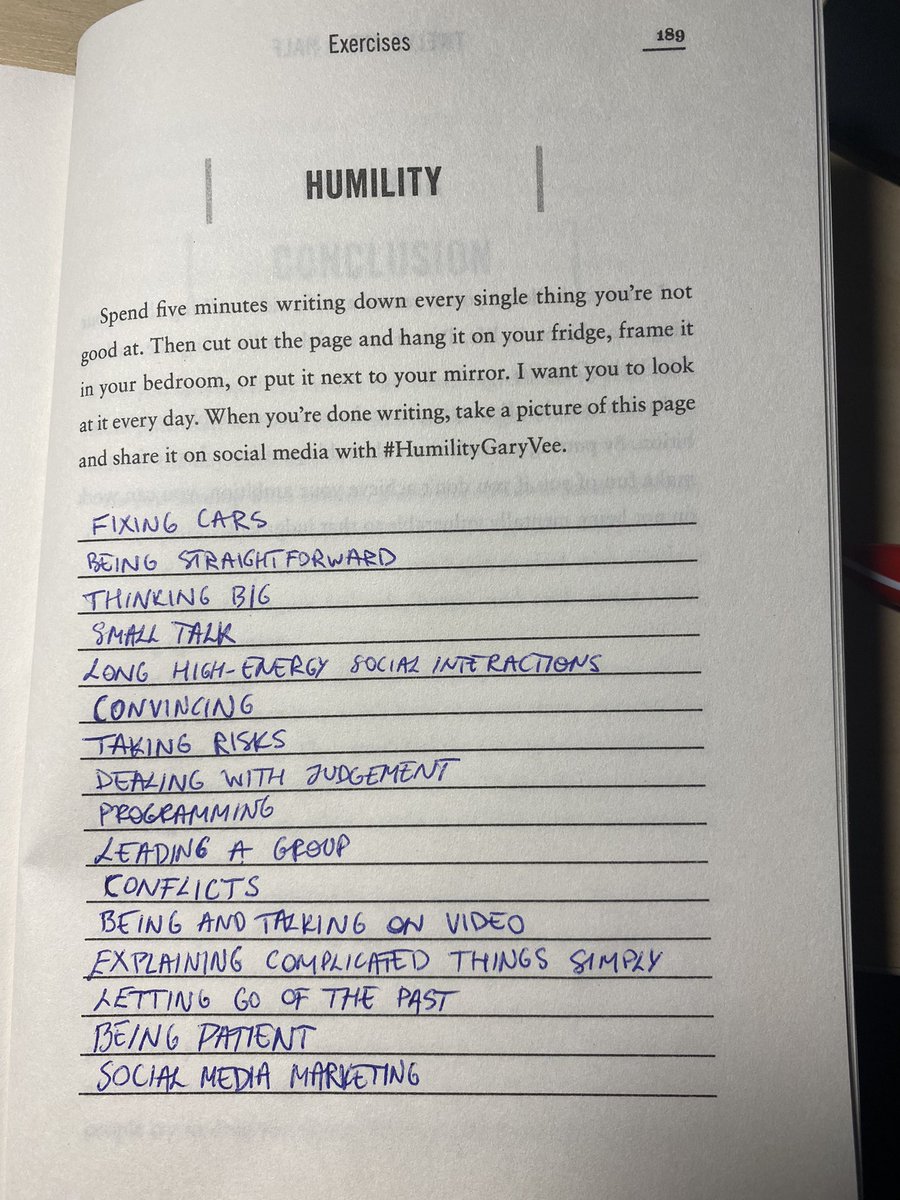 Exercises
189
HUMILITY
CONCLUSION
Spend five minutes writing down every single thing you're not
good at. Then cut out the page and hang it on your fridge, frame it
in your bedroom, or put it next to your mirror. I want you to look
at it every day. When you're done writing, take a picture of this page
and share it on social media with #HumilityGaryVee.
FIXING CARS
BEING STRAIGHTFORWARD
THINKING BIG
SMALL TALK
LONG HIGH-ENERGY SOCIAL INTERACTIONS
CONVINCING
TAKING RISKS
DEALING WITH JUDGEMENT
PROGRAMMING
LEADING A GROUP
CONFLICTS
BEING AND TALKING ON VIDEO
EXPLAINING COMPLICATED THINGS SIMPLY
LETTING GO OF THE PAST
BEING PATIENT
SOCIAL MEDIA MARKETING